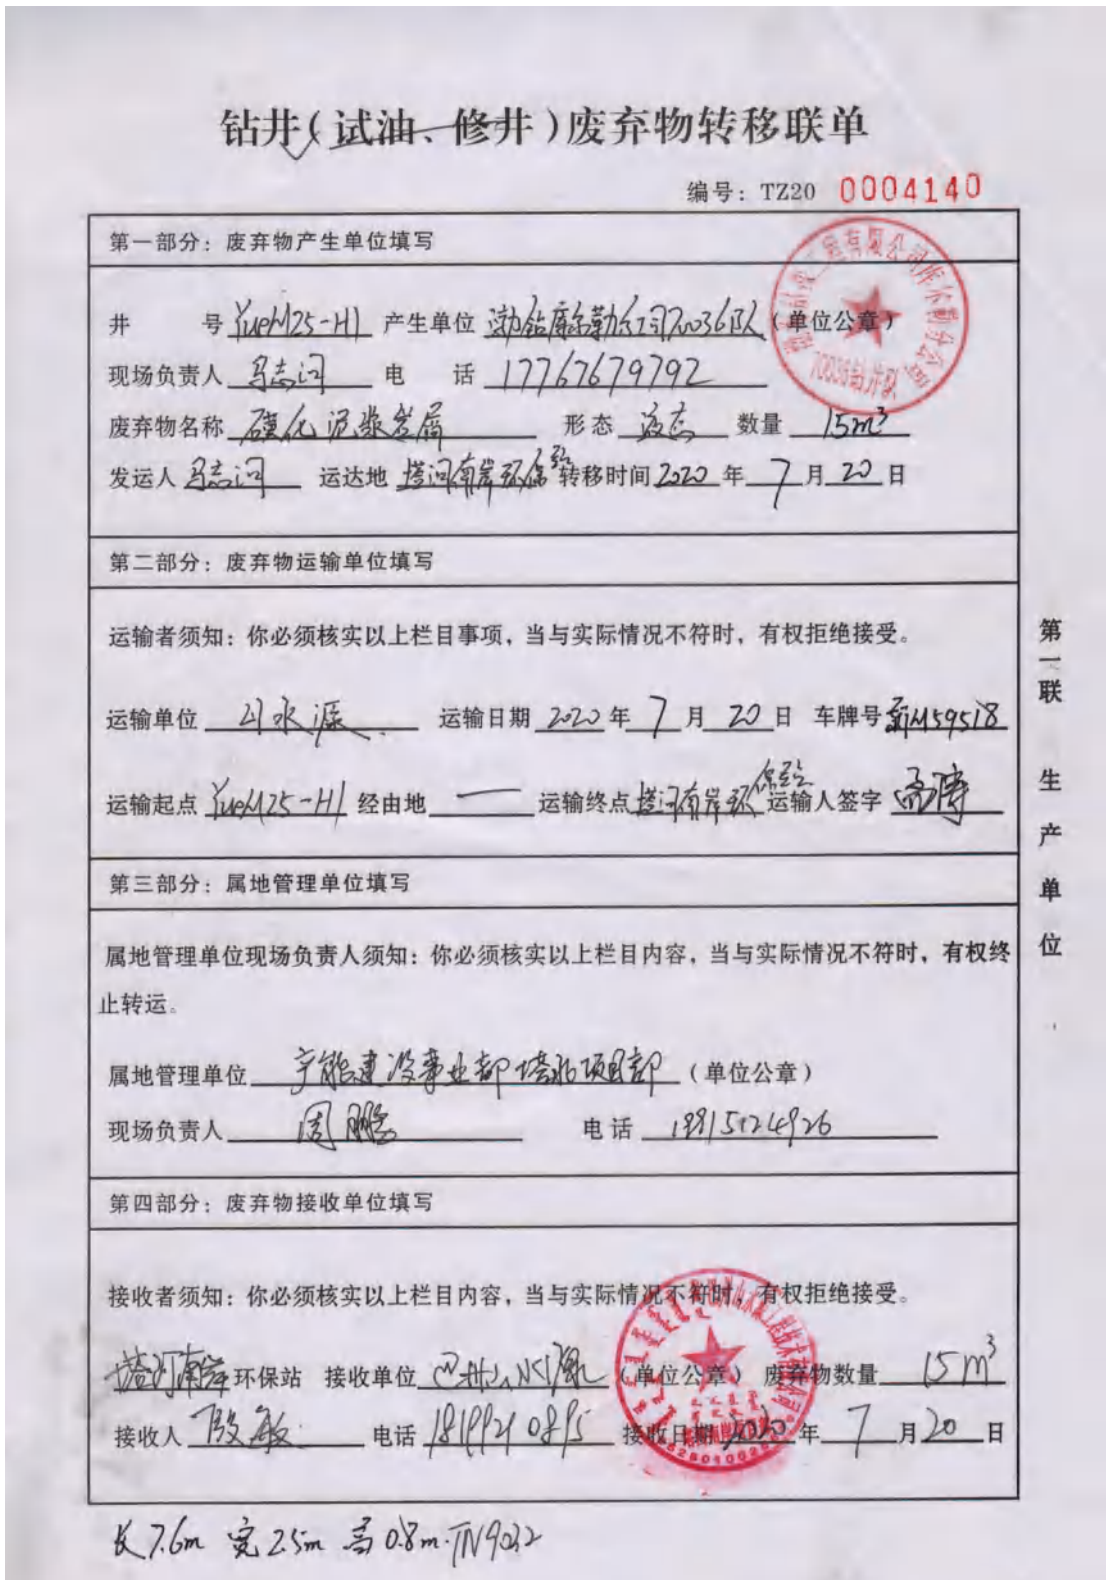 钻井(试油、修井)废弃物转移联单
编号：TZ20 0004140
第一部分：废弃物产生单位填写
井 号 YueM25-H1 产生单位 渤钻库尔勒分公司70036队 (单位公章)
70036钻井队
现场负责人 马志河 电 话 17767679792
废弃物名称 磺化泥浆岩屑 形态 液态 数量 15m³
发运人 马志河 运达地 塔河南岸环保站 转移时间 2020 年 7 月 20 日
第二部分：废弃物运输单位填写
运输者须知：你必须核实以上栏目事项，当与实际情况不符时，有权拒绝接受。
运输单位 山水源 运输日期 2020 年 7 月 20 日 车牌号 新M59518
运输起点 YueM25-H1 经由地 — 运输终点 塔河南岸环保站 运输人签字
第三部分：属地管理单位填写
属地管理单位现场负责人须知：你必须核实以上栏目内容，当与实际情况不符时，有权终
止转运。
属地管理单位 产能建设事业部塔北项目部 (单位公章)
现场负责人 周鹏 电话
第四部分：废弃物接收单位填写
接收者须知：你必须核实以上栏目内容，当与实际情况不符时，有权拒绝接受。
塔河南岸环保站 接收单位 巴州山水源 (单位公章) 废弃物数量 15m³
接收人 殷敏 电话 18199210895 接收日期 2020 年 7 月 20 日
长7.6m 宽2.5m 高0.8m·TN9032
第一联 生产单位